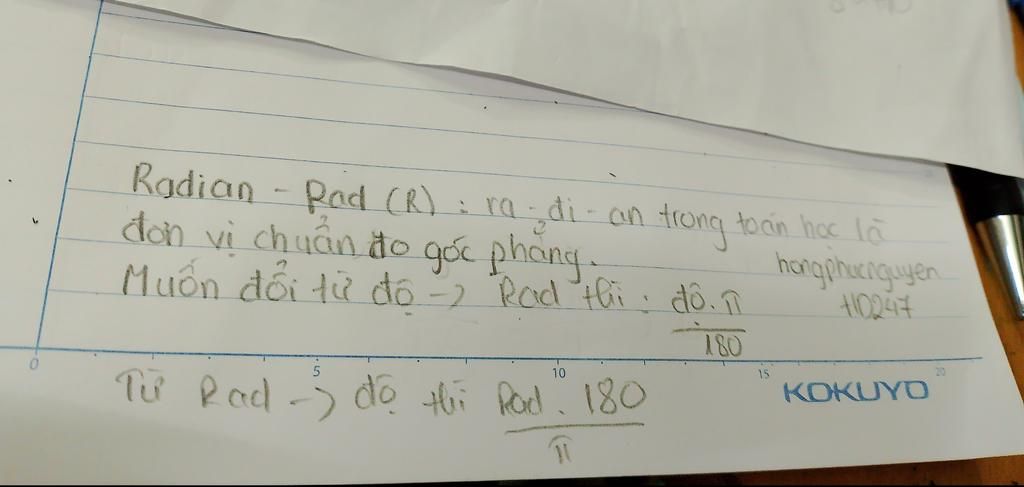 Radian - Rad (R) : ra-đi-an trong toán học là
đơn vị chuẩn đo góc phẳng.
hongphucnguyen
Muốn đổi từ độ -> Rad thì : độ.π
110247
180
0 5 10 15 20
Từ Rad -> độ thì Rad . 180
KOKUYO
π